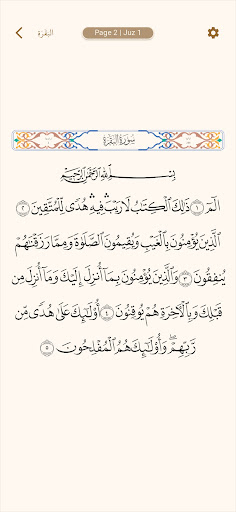 البقرة
Page 2 | Juz 1
سورة البقرة
بِسْمِ اللَّهِ الرَّحْمَٰنِ الرَّحِيمِ
الٓمٓ ١ ذَٰلِكَ الْكِتَٰبُ لَا رَيْبَۛ فِيهِۛ هُدًى لِّلْمُتَّقِينَ ٢
الَّذِينَ يُؤْمِنُونَ بِالْغَيْبِ وَيُقِيمُونَ الصَّلَوٰةَ وَمِمَّا رَزَقْنَٰهُمْ
يُنفِقُونَ ٣ وَالَّذِينَ يُؤْمِنُونَ بِمَآ أُنزِلَ إِلَيْكَ وَمَآ أُنزِلَ مِن
قَبْلِكَ وَبِالْءَاخِرَةِ هُمْ يُوقِنُونَ ٤ أُو۟لَٰٓئِكَ عَلَىٰ هُدًى مِّن
رَّبِّهِمْۖ وَأُو۟لَٰٓئِكَ هُمُ الْمُفْلِحُونَ ٥